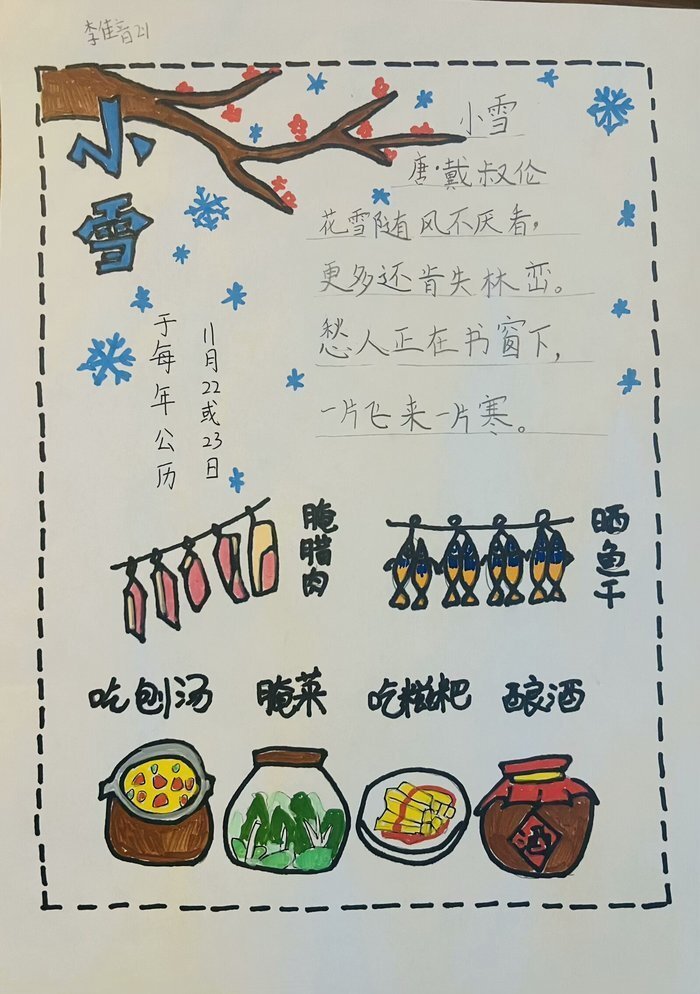 李佳音21
小雪
小雪
唐·戴叔伦
花雪随风不厌看,
更多还肯失林峦。
愁人正在书窗下,
一片飞来一片寒。
于每年公历
11月22或23日
腌腊肉
晒鱼干
吃刨汤
腌菜
吃糍粑
酿酒
酒